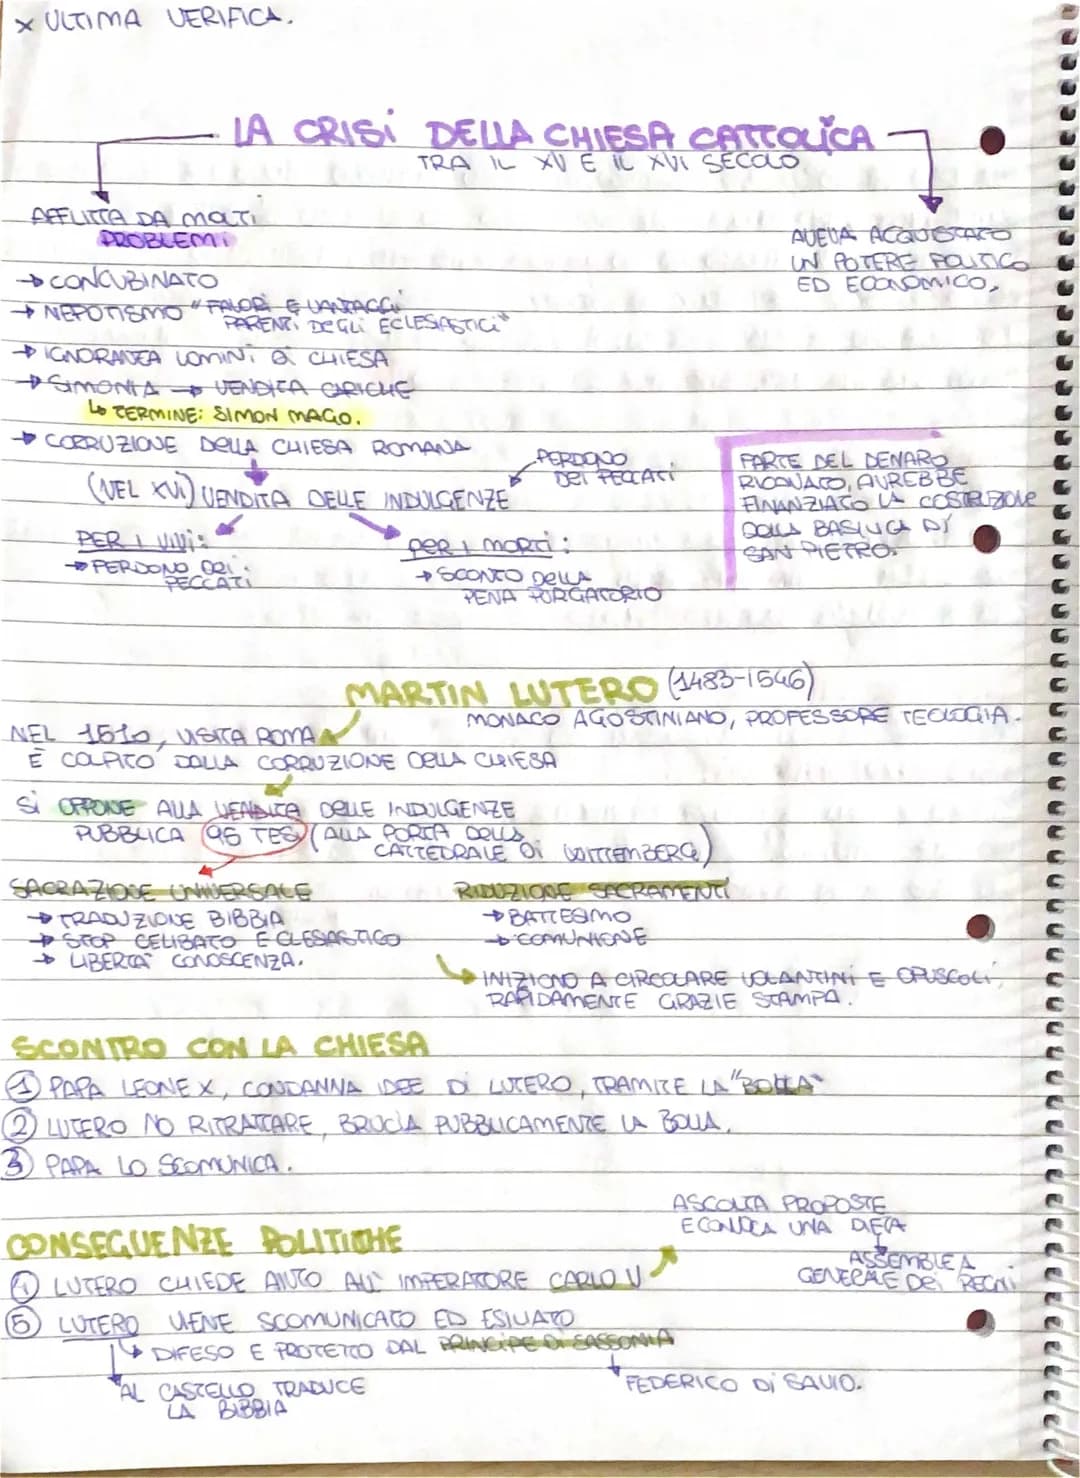 x ULTIMA VERIFICA.
LA CRISI DELLA CHIESA CATTOLICA
TRA IL XV E IL XVI SECOLO
AFFLITTA DA MOLTI
PROBLEMI
→ CONCUBINATO
→ NEPOTISMO "FAVORI E VANTAGGI
PARENTI DEGLI ECLESIASTICI"
→ IGNORANZA UOMINI DI CHIESA
→ SIMONIA → VENDITA CARICHE
↳ TERMINE: SIMON MAGO.
→ CORRUZIONE DELLA CHIESA ROMANA
(NEL XVI) VENDITA DELLE INDULGENZE
PERDONO
DEI PECCATI
PER I VIVI:
→ PERDONO DEI
PECCATI
PER I MORTI:
→ SCONTO DELLA
PENA PURGATORIO
AVEVA ACQUISTATO
UN POTERE POLITICO
ED ECONOMICO,
PARTE DEL DENARO
RICAVATO, AVREBBE
FINANZIATO LA COSTRUZIONE
DELLA BASILICA DI
SAN PIETRO.
MARTIN LUTERO (1483-1546)
MONACO AGOSTINIANO, PROFESSORE TEOLOGIA.
NEL 1510, VISITA ROMA
È COLPITO DALLA CORRUZIONE DELLA CHIESA
SI OPPONE ALLA VENDITA DELLE INDULGENZE
PUBBLICA 95 TESI (ALLA PORTA DELLA
CATTEDRALE DI WITTEMBERG)
SACRAZIONE UNIVERSALE
→ TRADUZIONE BIBBIA
→ STOP CELIBATO ECLESIASTICO
→ LIBERTÀ CONOSCENZA.
RIDUZIONE SACRAMENTI
→ BATTESIMO
→ COMUNIONE
↳ INIZIONO A CIRCOLARE VOLANTINI E OPUSCOLI,
RAPIDAMENTE GRAZIE STAMPA.
SCONTRO CON LA CHIESA
1 PAPA LEONE X, CONDANNA IDEE DI LUTERO, TRAMITE LA "BOLLA"
2 LUTERO NO RITRATTARE, BRUCIA PUBBLICAMENTE LA BOLLA.
3 PAPA LO SCOMUNICA.
CONSEGUENZE POLITICHE
ASCOLTA PROPOSTE
E CONVOCA UNA DIETA
ASSEMBLEA
GENERALE DEI REGNI
LUTERO CHIEDE AIUTO ALL' IMPERATORE CARLO V
5 LUTERO VIENE SCOMUNICATO ED ESILIATO
↳ DIFESO E PROTETTO DAL PRINCIPE DI SASSONIA
FEDERICO DI SAVIO.
AL CASTELLO TRADUCE
LA BIBBIA